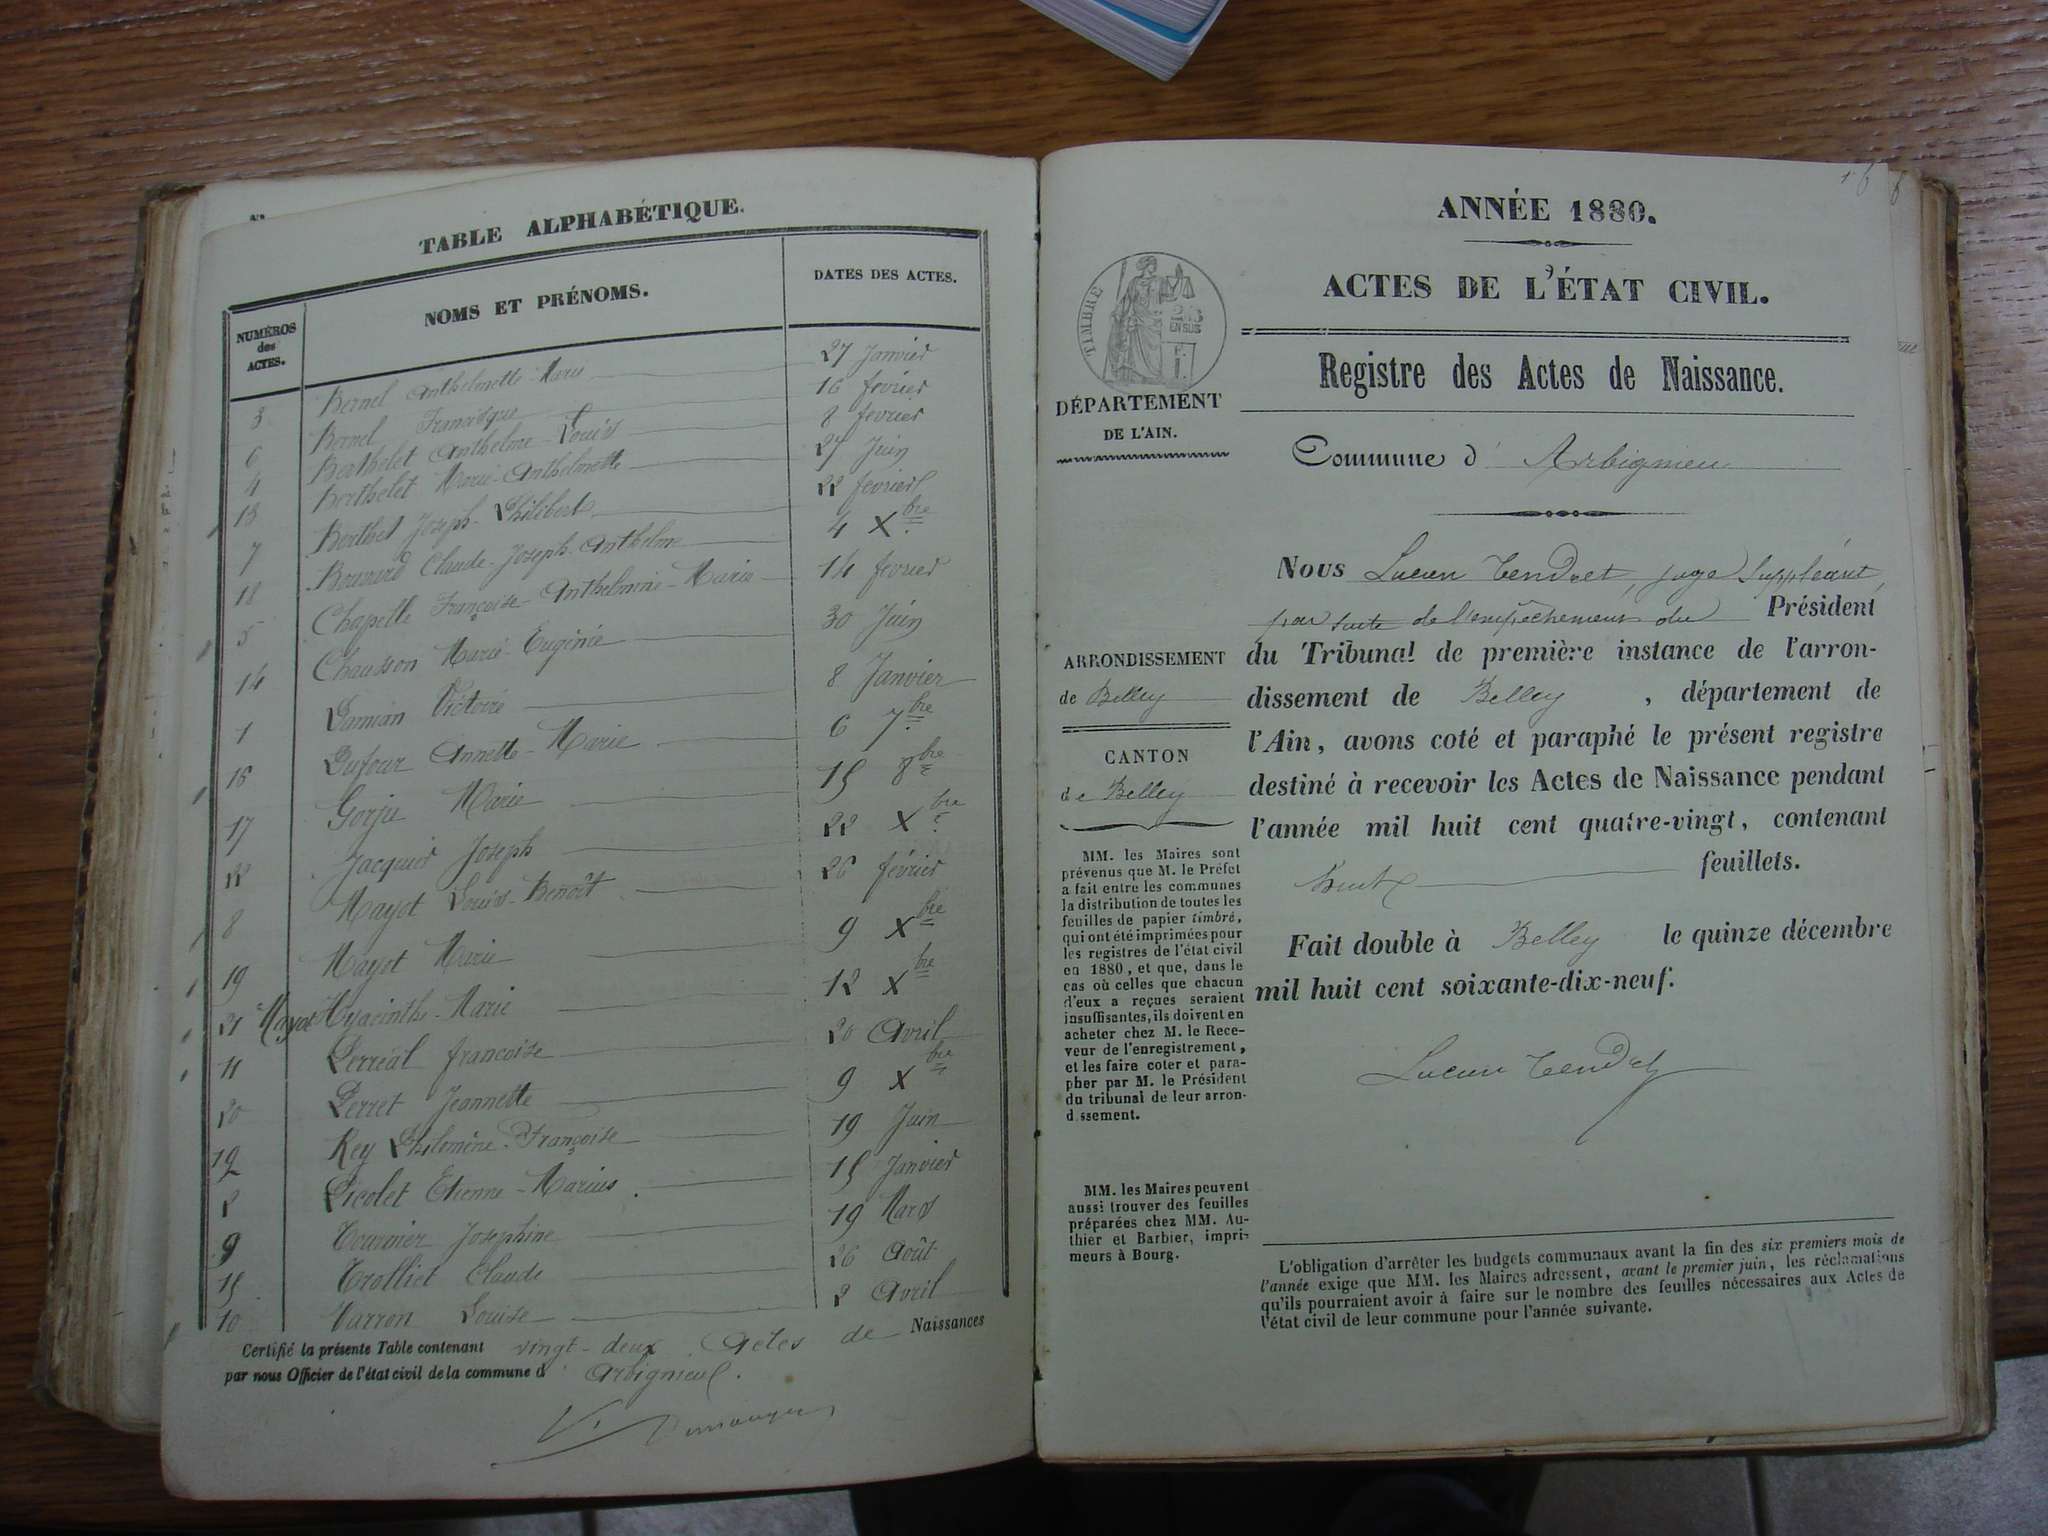 TABLE ALPHABÉTIQUE.
NUMÉROS des ACTES. NOMS ET PRÉNOMS. DATES DES ACTES.
3 Bernel Anthelmette-Marie 27 Janvier
6 Bernel Francisque 16 février
4 Berthelet Anthelme-Louis 8 février
13 Berthelet Marie-Anthelmette 27 Juin
7 Berthet Joseph-Philibert 22 février
18 Claude-Joseph-Anthelme 4 Xbre
5 Chapelle Françoise-Anthelmine-Marie 14 février
14 Chausson Marie-Eugénie 30 Juin
1 Damian Victoire 8 Janvier
16 Dufour Annette-Marie 6 7bre
17 Gorju Marie 15 8bre
22 Jacquier Joseph 22 Xbre
8 Mayot Louis-Benoît 26 février
19 Mayot Marie 9 Xbre
21 Mayot Hyacinthe-Marie 12 Xbre
11 Perréal françoise 20 Avril
20 Perret Jeannette 9 Xbre
12 Rey Philomène-Françoise 19 Juin
2 Picolet Etienne-Marius 15 Janvier
9 Tournier Josephine 19 Mars
15 Trolliet Claude 26 Août
10 Varron Louise 2 Avril
Certifié la présente Table contenant vingt-deux Actes de Naissances
par nous Officier de l'état civil de la commune d' Arbignieu.
ANNÉE 1880.
ACTES DE L'ÉTAT CIVIL.
TIMBRE
25
EN SUS
DÉPARTEMENT
DE L'AIN.
Registre des Actes de Naissance.
Commune d' Arbignieu
Nous Lucien Tendret, juge suppléant,
par suite de l'empêchement du Président
du Tribunal de première instance de l'arron-
dissement de Belley, département de
l'Ain, avons coté et paraphé le présent registre
destiné à recevoir les Actes de Naissance pendant
l'année mil huit cent quatre-vingt, contenant
huit feuillets.
Fait double à Belley le quinze décembre
mil huit cent soixante-dix-neuf.
Lucien Tendret
ARRONDISSEMENT
de Belley
CANTON
de Belley
MM. les Maires sont
prévenus que M. le Préfet
a fait entre les communes
la distribution de toutes les
feuilles de papier timbré,
qui ont été imprimées pour
les registres de l'état civil
en 1880, et que, dans le
cas où celles que chacun
d'eux a reçues seraient
insuffisantes, ils doivent en
acheter chez M. le Rece-
veur de l'enregistrement,
et les faire coter et para-
pher par M. le Président
du tribunal de leur arron-
dissement.
MM. les Maires peuvent
aussi trouver des feuilles
préparées chez MM. Au-
thier et Barbier, impri-
meurs à Bourg.
L'obligation d'arrêter les budgets communaux avant la fin des six premiers mois de
l'année exige que MM. les Maires adressent, avant le premier juin, les réclamations
qu'ils pourraient avoir à faire sur le nombre des feuilles nécessaires aux Actes de
l'état civil de leur commune pour l'année suivante.